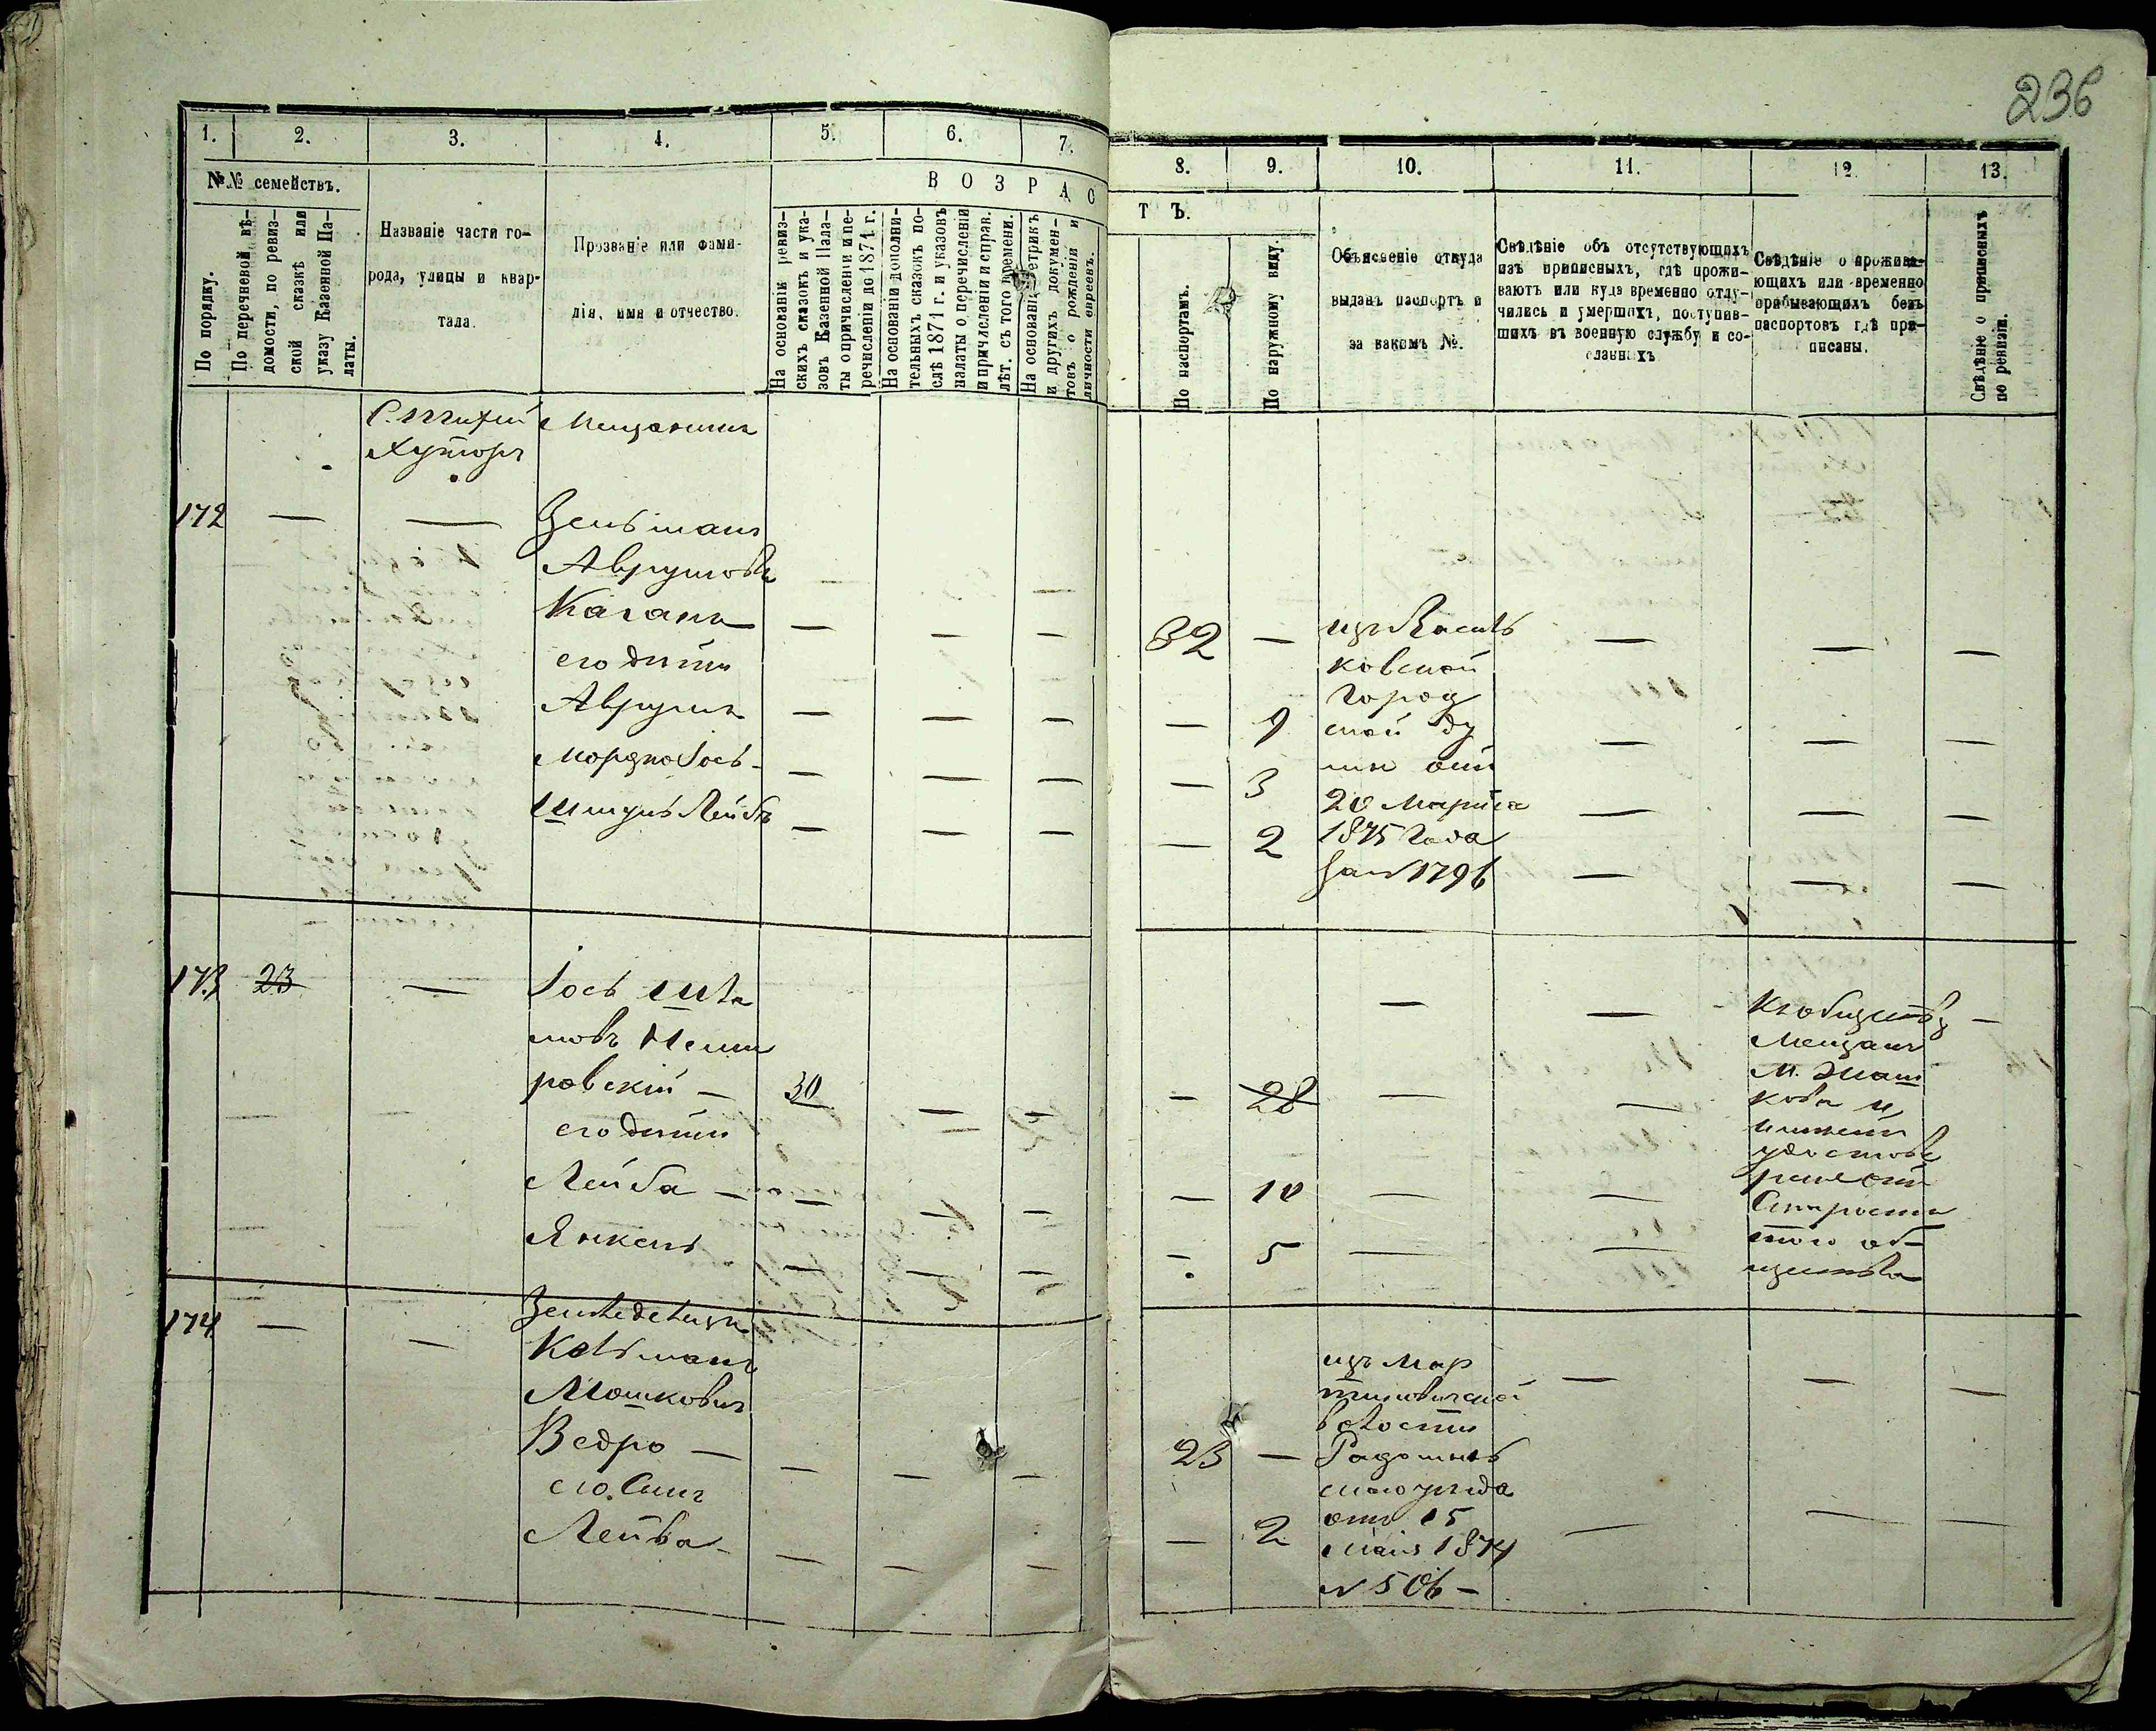 236
1. 2. 3. 4. 5. 6. 7. 8. 9. 10. 11. 12. 13.
№№ семействъ.
ВОЗРАСТЪ.
По порядку.
По перечневой вѣ-
домости, по ревиз-
ской сказкѣ или
указу Казенной Па-
латы.
Названіе части го-
рода, улицы и квар-
тала.
Прозваніе или фами-
лія, имя и отчество.
На основаніи ревиз-
скихъ сказокъ и ука-
зовъ Казенной Пала-
ты о причисленіи и пе-
речисленіи до 1871 г.
На основаніи дополни-
тельныхъ сказокъ по-
слѣ 1871 г. и указовъ
палаты о перечисленіи
и причисленіи и справ.
лѣт. съ того времени.
На основаніи метрикъ
и другихъ докумен-
товъ о рожденіи и
личности евреевъ.
По паспортамъ.
По наружному виду.
Объясненіе откуда
выданъ паспортъ и
за какимъ №.
Свѣдѣніе объ отсутствующихъ
изъ приписныхъ, гдѣ прожи-
ваютъ или куда временно отлу-
чились и умершихъ, поступив-
шихъ въ военную службу и со-
сланныхъ
Свѣдѣніе о прожива-
ющихъ или временно
пребывающихъ безъ
паспортовъ гдѣ при-
писаны.
Свѣдѣніе о приписныхъ
по ревизіи.
Хуторъ
Мещанинъ
172 — —
Аврумовъ
Каганъ — — — 32 — — — —
его дѣти
Аврумъ — — — — 9 — — —
Мордко Іось — — — — — 3 — — —
Шмуль Лейбъ — — — — 2 — — —
изъ Василь
ковской
Город
ской ду
мы отъ
20 Марта
1875 Года
за № 1796
173 23 —
Іось
мовъ Неми
ровскій — 30 — — — 28 — —
его дѣти
Лейба — — — — — 10 — —
Янкель — — — — 5 — —
Къ обществу
Мещанъ
М. Жаш
кова и
имѣетъ
удостовѣ
реніе отъ
Старосты
того об-
щества
174 — —
Земледѣлецъ
Кельманъ
Мошковичъ
Ведро — — — — 23 — — — —
его Сынъ
Лейба — — — — — 2 — — —
изъ Мар
тиновичской
волости
Радомысль
скаго уѣзда
отъ 15
Мая 1874
№ 506 —